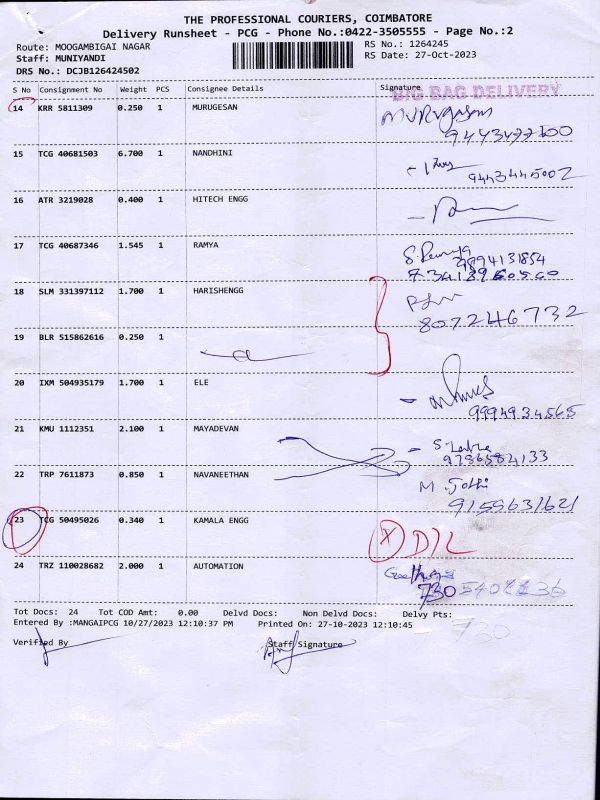 THE PROFESSIONAL COURIERS, COIMBATORE
Delivery Runsheet - PCG - Phone No.:0422-3505555 - Page No.:2
Route: MOOGAMBIGAI NAGAR RS No.: 1264245
Staff: MUNIYANDI RS Date: 27-Oct-2023
DRS No.: DCJB126424502
S No Consignment No Weight PCS Consignee Details Signature
BIG BAG DELIVERY
14 KRR 5811309 0.250 1 MURUGESAN Murugesan
15 TCG 40681503 6.700 1 NANDHINI
9443445002
16 ATR 3219028 0.400 1 HITECH ENGG
17 TCG 40687346 1.545 1 RAMYA S. Ramya
9894131854
18 SLM 331397112 1.700 1 HARISHENGG
807246732
19 BLR 515862616 0.250 1
20 IXM 504935179 1.700 1 ELE
9994934565
21 KMU 1112351 2.100 1 MAYADEVAN
22 TRP 7611873 0.850 1 NAVANEETHAN M. Jothi
9159631621
23 TCG 50495026 0.340 1 KAMALA ENGG X D/L
24 TRZ 110028682 2.000 1 AUTOMATION
Tot Docs: 24 Tot COD Amt: 0.00 Delvd Docs: Non Delvd Docs: Delvy Pts:
Entered By :MANGAIPCG 10/27/2023 12:10:37 PM Printed On: 27-10-2023 12:10:45
730
Verified By Staff Signature